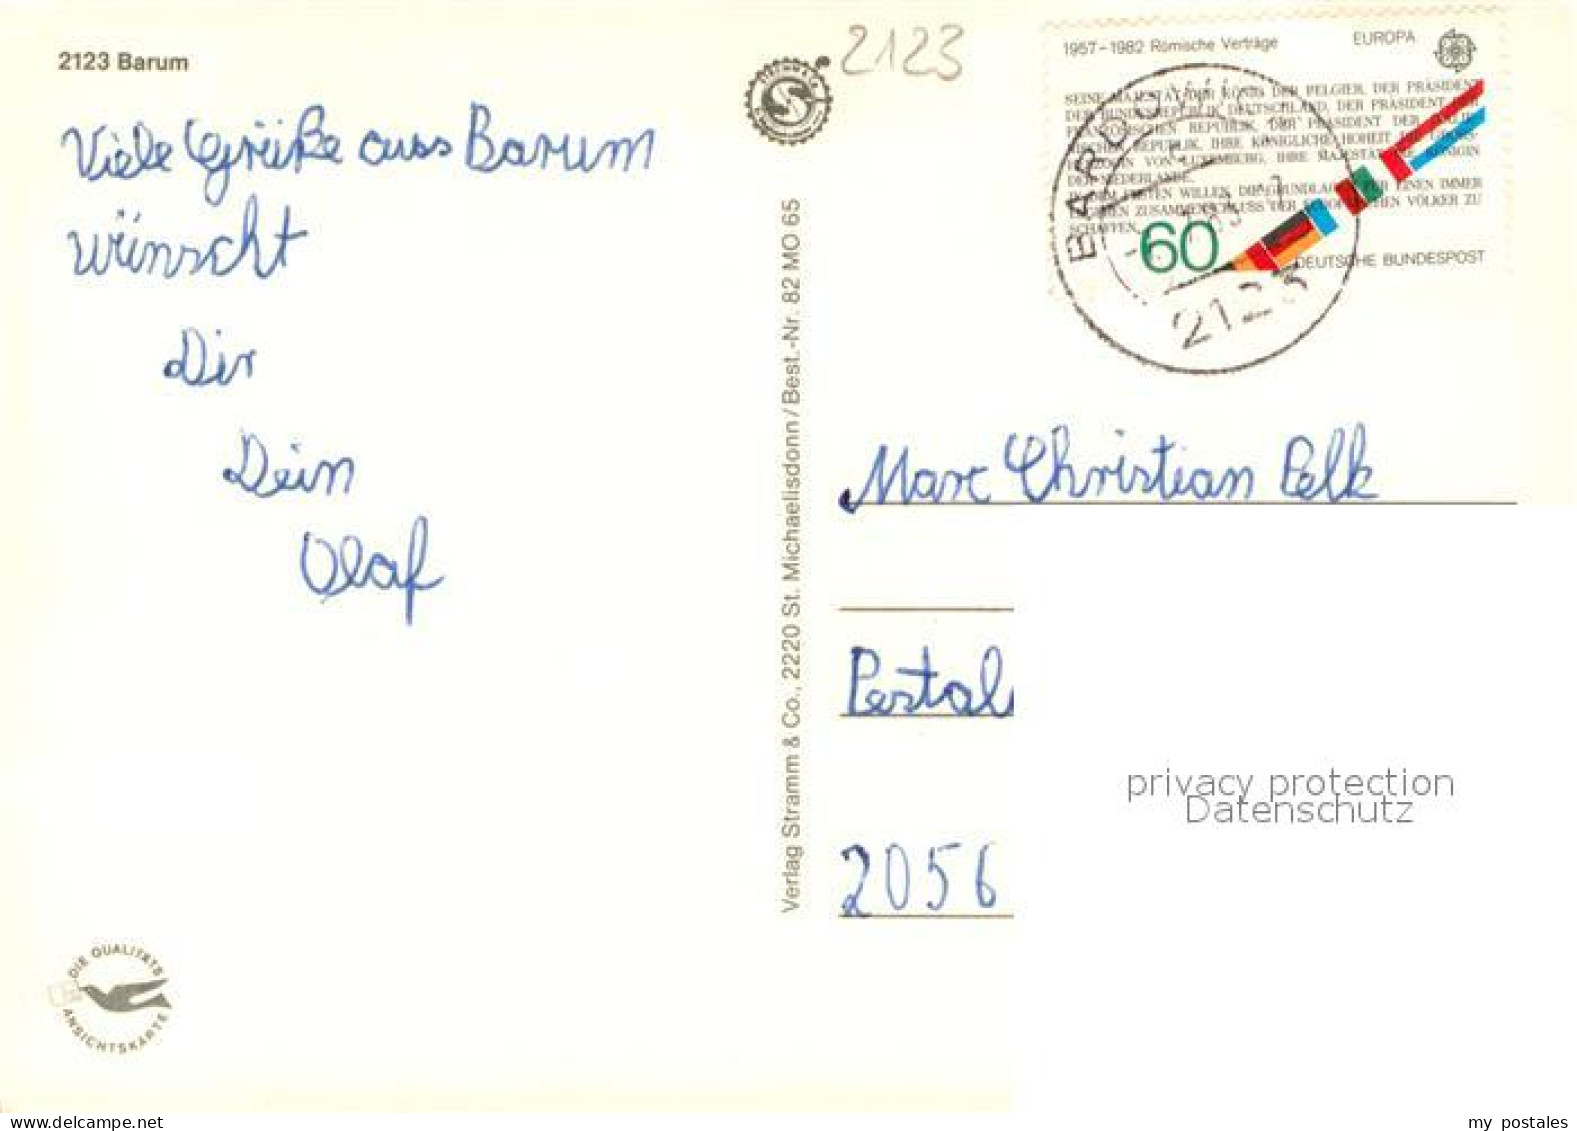 2123 Barum
Viele Grüße auss Barum
wünscht
Dir
Dein
Olaf
DIE QUALITÄTS
ANSICHTSKARTE
Verlag Stramm & Co., 2220 St. Michaelisdonn / Best.-Nr. 82 MO 65
2123
1957-1982 Römische Verträge
EUROPA
SEINE MAJESTÄT DER KÖNIG DER BELGIER, DER PRÄSIDENT
DER BUNDESREPUBLIK DEUTSCHLAND, DER PRÄSIDENT
REPUBLIK, DER PRÄSIDENT DER
REPUBLIK, IHRE KÖNIGLICHE HOHEIT DIE
VON LUXEMBURG, IHRE MAJESTÄT DIE KÖNIGIN
DER NIEDERLANDE,
FESTEN WILLEN, DIE GRUNDLAGEN FÜR EINEN IMMER
ENGEREN ZUSAMMENSCHLUSS DER EUROPÄISCHEN VÖLKER ZU
SCHAFFEN,
60
DEUTSCHE BUNDESPOST
BARUM
2123
Marc Christian Pelk
Pestal
2056
privacy protection
Datenschutz
my postales